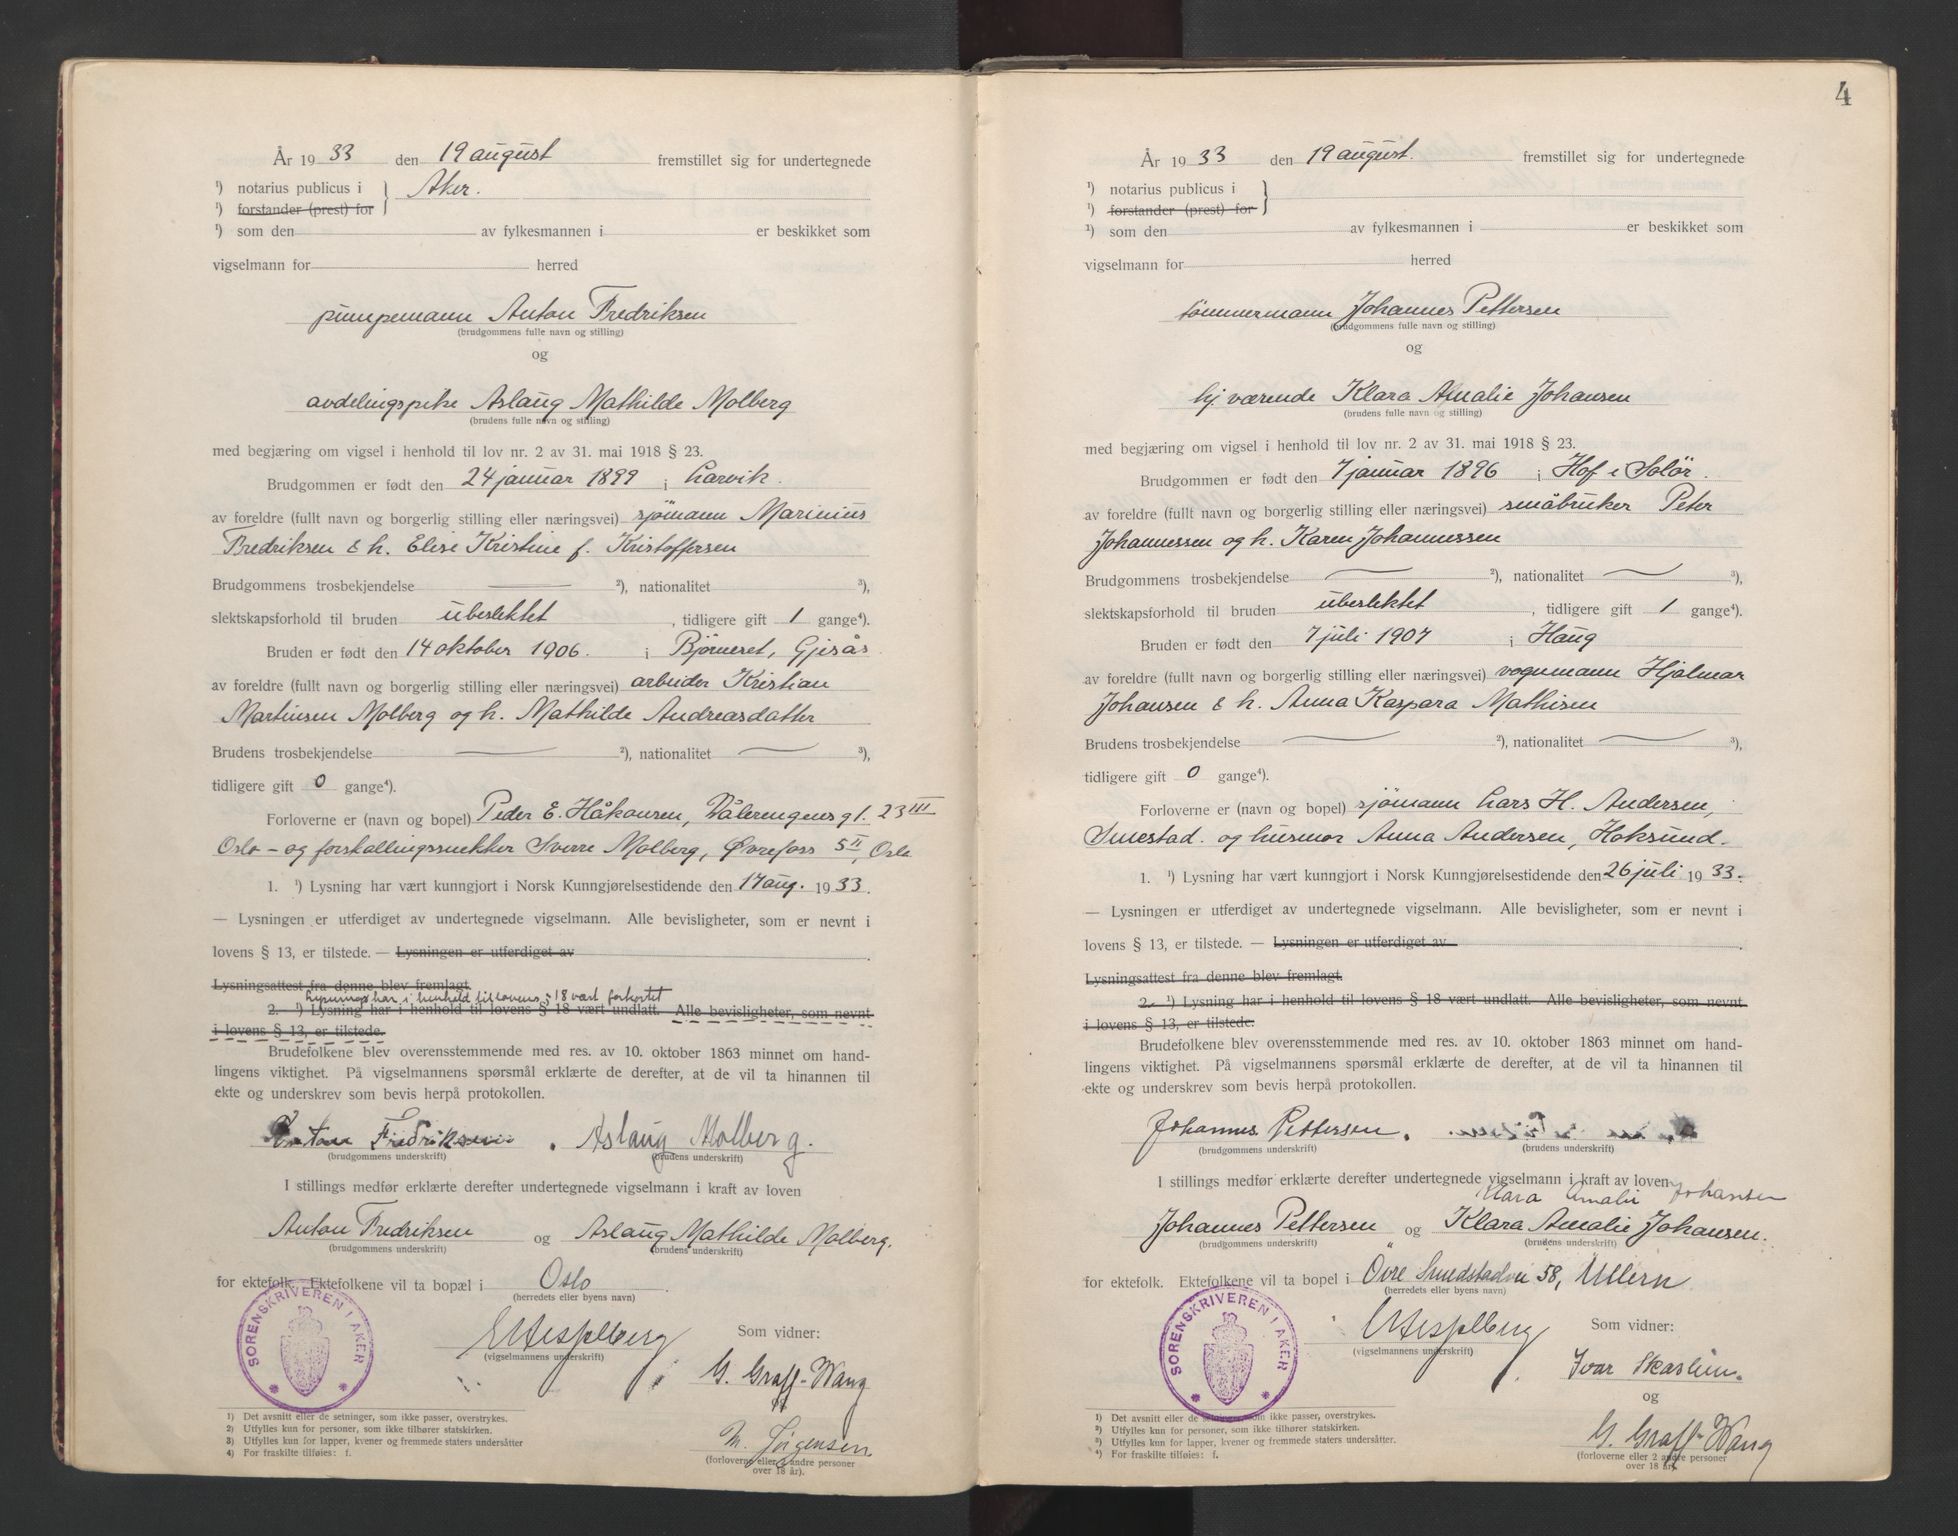 År 1933 den 19 august fremstillet sig for undertegnede
¹) notarius publicus i } Aker.
¹) forstander (prest) for
¹) som den av fylkesmannen i er beskikket som
vigselmann for herred
pumpemann Anton Fredriksen
(brudgommens fulle navn og stilling)
og
avdelingspike Aslaug Mathilde Molberg
(brudens fulle navn og stilling)
med begjæring om vigsel i henhold til lov nr. 2 av 31. mai 1918 § 23.
Brudgommen er født den 24 januar 1899 i Larvik.
av foreldre (fullt navn og borgerlig stilling eller næringsvei) sjømann Marinius
Fredriksen & h. Elise Kristine f. Kristoffersen
Brudgommens trosbekjendelse ²), nationalitet ³),
slektskapsforhold til bruden ubeslektet, tidligere gift 1 gange⁴).
Bruden er født den 14 oktober 1906. i Bjørneret, Gjesås
av foreldre (fullt navn og borgerlig stilling eller næringsvei) arbeider Kristian
Martinsen Molberg og h. Mathilde Andreasdatter
Brudens trosbekjendelse ²), nationalitet ³),
tidligere gift 0 gange⁴).
Forloverne er (navn og bopel) Peder E. Håkonsen, Vålerengens gt. 23 III
Oslo - og forskallingssnekker Sverre Molberg, Øvrefoss 5 II, Oslo
1. ¹) Lysning har vært kunngjort i Norsk Kunngjørelsestidende den 17 aug. 1933.
— Lysningen er utferdiget av undertegnede vigselmann. Alle bevisligheter, som er nevnt i
lovens § 13, er tilstede. — Lysningen er utferdiget av
Lysningsattest fra denne blev fremlagt.
Lysning har i henhold til lovens § 18 vært forkortet
2. ¹) Lysning har i henhold til lovens § 18 vært undlatt. Alle bevisligheter, som nevnt
i lovens § 13, er tilstede.
Brudefolkene blev overensstemmende med res. av 10. oktober 1863 minnet om hand-
lingens viktighet. På vigselmannens spørsmål erklærte de derefter, at de vil ta hinannen til
ekte og underskrev som bevis herpå protokollen.
Anton Fredriksen. Aslaug Molberg.
(brudgommens underskrift) (brudens underskrift)
I stillings medfør erklærte derefter undertegnede vigselmann i kraft av loven
Anton Fredriksen og Aslaug Mathilde Molberg.
(brudgommens underskrift) (brudens underskrift)
for ektefolk. Ektefolkene vil ta bopæl i Oslo
(herredets eller byens navn)
SORENSKRIVEREN I AKER
Som vidner:
(vigselmannens underskrift)
G. Graff-Wang
og
M. Jørgensen
(forloverne eller 2 andre personer
over 18 år).
1) Det avsnitt eller de setninger, som ikke passer, overstrykes.
2) Utfylles kun for personer, som ikke tilhører statskirken.
3) Utfylles kun for lapper, kvener og fremmede staters undersåtter
4) For fraskilte tilføies: f.
4
År 1933 den 19 august. fremstillet sig for undertegnede
¹) notarius publicus i }
¹) forstander (prest) for
¹) som den av fylkesmannen i er beskikket som
vigselmann for herred
tømmermann Johannes Pettersen
(brudgommens fulle navn og stilling)
og
hj. værende Klara Amalie Johansen
(brudens fulle navn og stilling)
med begjæring om vigsel i henhold til lov nr. 2 av 31. mai 1918 § 23.
Brudgommen er født den 7 januar 1896 i Hof i Solør.
av foreldre (fullt navn og borgerlig stilling eller næringsvei) småbruker Peter
Johannessen og h. Karen Johannessen
Brudgommens trosbekjendelse ²), nationalitet ³),
slektskapsforhold til bruden ubeslektet, tidligere gift 1 gange⁴).
Bruden er født den 7 juli 1907 i Haug
av foreldre (fullt navn og borgerlig stilling eller næringsvei) vognmann Hjalmar
Johansen & h. Anna Kaspara Mathisen
Brudens trosbekjendelse ²), nationalitet ³),
tidligere gift 0 gange⁴).
Forloverne er (navn og bopel) sjømann Lars H. Andersen,
Smestad. og husmor Anna Andersen, Hoksund.
1. ¹) Lysning har vært kunngjort i Norsk Kunngjørelsestidende den 26 juli 1933.
— Lysningen er utferdiget av undertegnede vigselmann. Alle bevisligheter, som er nevnt i
lovens § 13, er tilstede. — Lysningen er utferdiget av
Lysningsattest fra denne blev fremlagt.
2. ¹) Lysning har i henhold til lovens § 18 vært undlatt. Alle bevisligheter, som nevnt
i lovens § 13, er tilstede.
Brudefolkene blev overensstemmende med res. av 10. oktober 1863 minnet om hand-
lingens viktighet. På vigselmannens spørsmål erklærte de derefter, at de vil ta hinannen til
ekte og underskrev som bevis herpå protokollen.
Johannes Pettersen.
(brudgommens underskrift) (brudens underskrift)
I stillings medfør erklærte derefter undertegnede vigselmann i kraft av loven
Klara Amalie Johansen
Johannes Pettersen og Klara Amalie Johansen.
(brudgommens underskrift) (brudens underskrift)
for ektefolk. Ektefolkene vil ta bopel i Øvre Smedstadvei 58, Ullern
(herredets eller byens navn)
SORENSKRIVEREN I AKER
Som vidner:
(vigselmannens underskrift)
Ivar
og
G. Graff-Wang
(forloverne eller 2 andre personer
over 18 år).
1) Det avsnitt eller de setninger, som ikke passer, overstrykes.
2) Utfylles kun for personer, som ikke tilhører statskirken.
3) Utfylles kun for lapper, kvener og fremmede staters undersåtter.
4) For fraskilte tilføies: f.